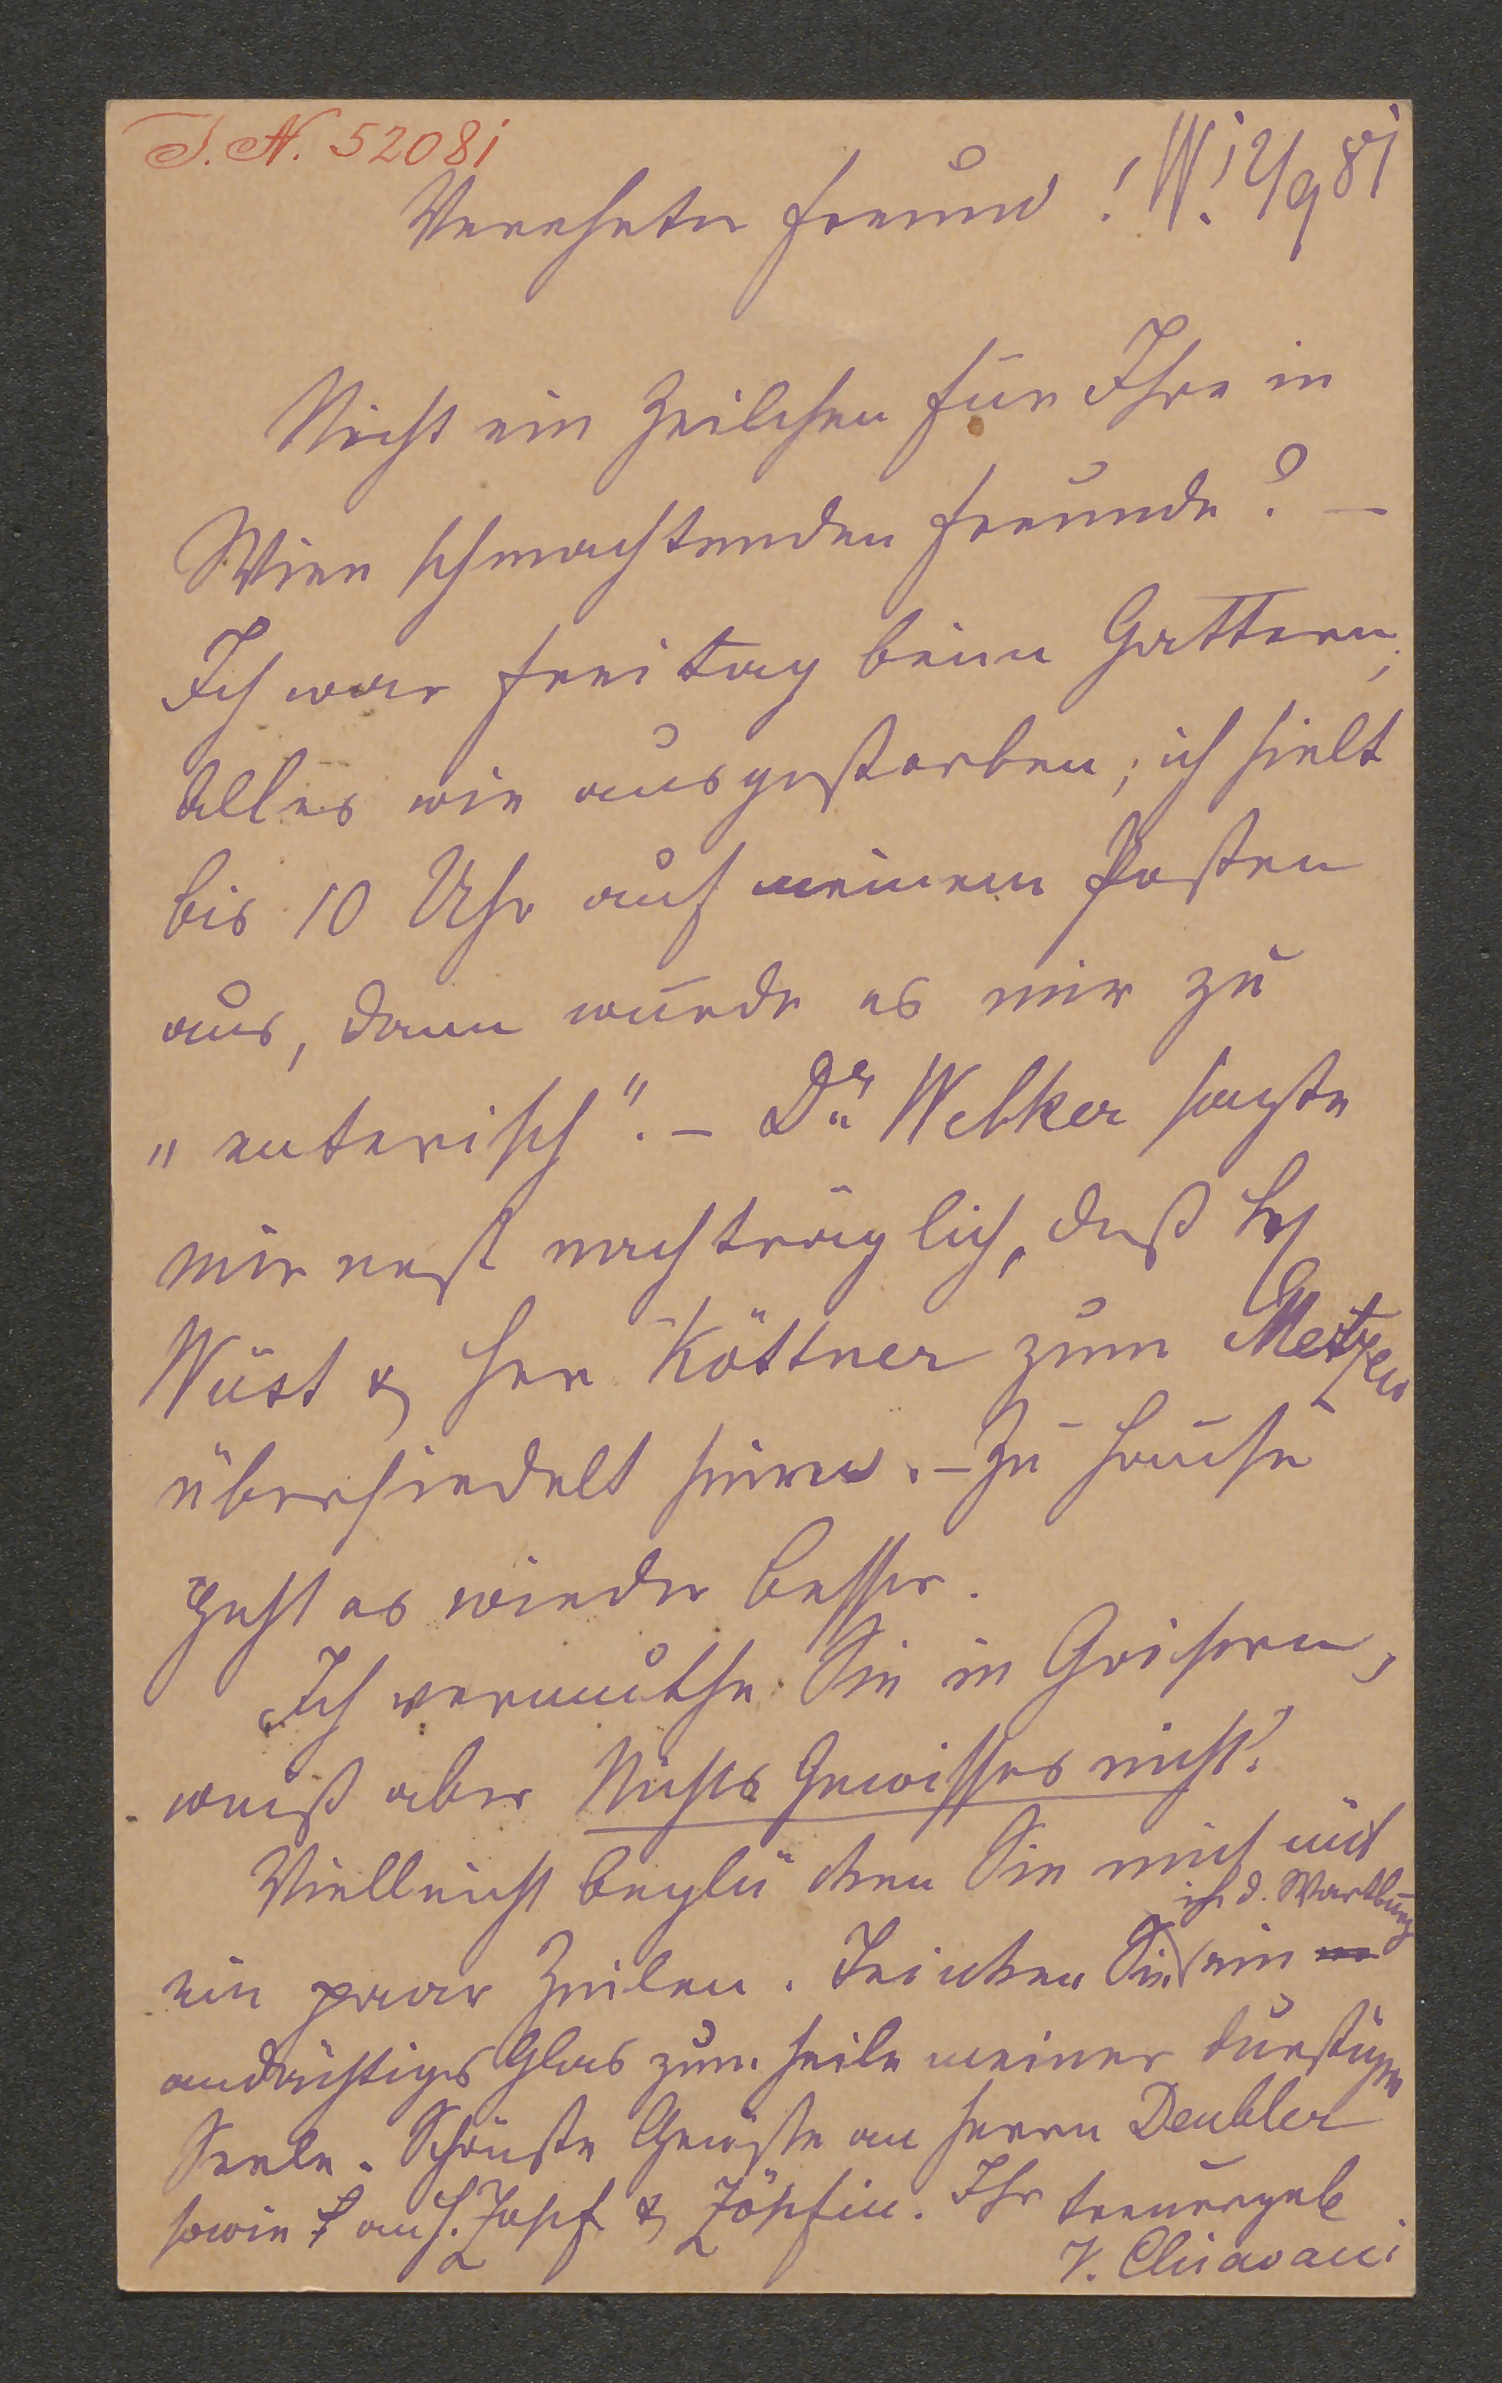 I. N. 52081
W. 12/9 81
Verehrter Freund!
Nicht ein Zeilchen für Ihre in
Wien schmachtenden Freunde? –
Ich war Freitag beim Gattern,
Alles wie ausgestorben; ich hielt
bis 10 Uhr auf meinem Posten
aus, dann wurde es mir zu
„enterisch". – Dr. Welker sagte
mir erst nachträglich, daß
Wüst & Herr Köttner zum Metzen
übersiedelt seien. – Zu Hause
geht es wieder besser.
Ich vermuthe Sie in Goisern,
weiß aber Nichts Gewisses nicht!
Vielleicht beglücken Sie mich mit
ein paar Zeilen. Trinken Sie auf d. Wartburg ein
andächtiges Glas zum Heile meiner durstigen
Seele. Schönste Grüße an Herrn Deubler
sowie an H. Zapf & Zöpfin. Ihr treuergeb
V. Chiavacci